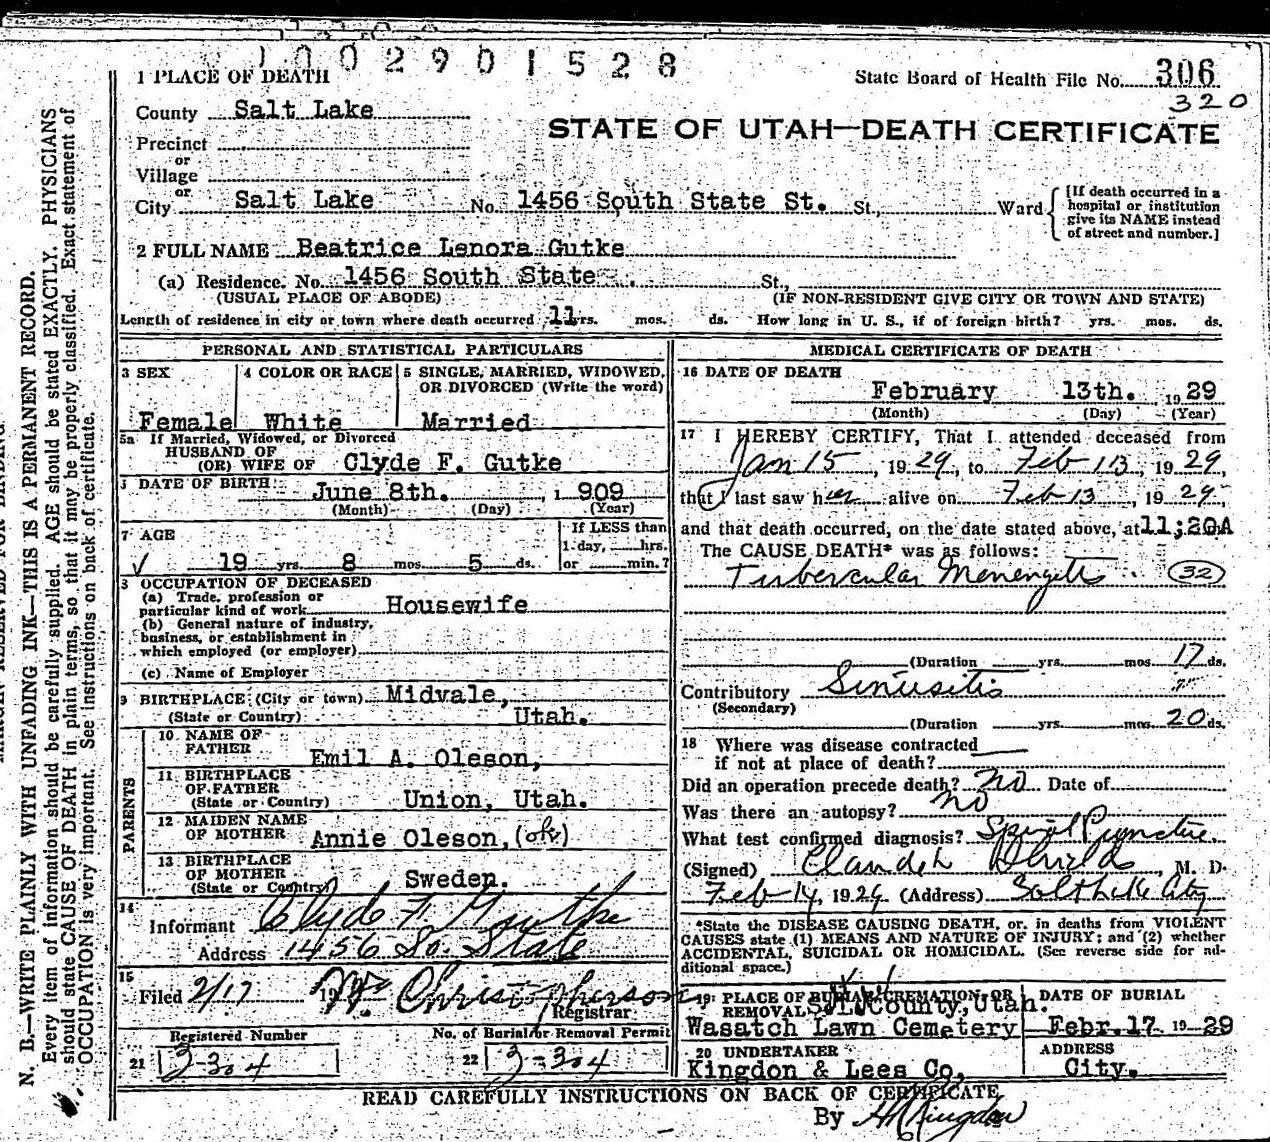 1002901528
1 PLACE OF DEATH
State Board of Health File No. 306
320
County Salt Lake
STATE OF UTAH—DEATH CERTIFICATE
Precinct
or
Village
or
City Salt Lake No. 1456 South State St. St., Ward
[If death occurred in a hospital or institution give its NAME instead of street and number.]
2 FULL NAME Beatrice Lenora Gutke
(a) Residence. No. 1456 South State St.,
(USUAL PLACE OF ABODE) (IF NON-RESIDENT GIVE CITY OR TOWN AND STATE)
Length of residence in city or town where death occurred 11 yrs. mos. ds. How long in U. S., if of foreign birth? yrs. mos. ds.
PERSONAL AND STATISTICAL PARTICULARS
3 SEX
Female
4 COLOR OR RACE
White
5 SINGLE, MARRIED, WIDOWED,
OR DIVORCED (Write the word)
Married
5a If Married, Widowed, or Divorced
HUSBAND OF
(OR) WIFE OF Clyde F. Gutke
DATE OF BIRTH June 8th. , 1 909
(Month) (Day) (Year)
7 AGE
19 yrs. 8 mos. 5 ds.
If LESS than
1 day, hrs.
or min.?
OCCUPATION OF DECEASED
(a) Trade, profession or
particular kind of work Housewife
(b) General nature of industry,
business, or establishment in
which employed (or employer)
(c) Name of Employer
9 BIRTHPLACE (City or town) Midvale,
(State or Country) Utah.
PARENTS
10 NAME OF
FATHER Emil A. Oleson,
11 BIRTHPLACE
OF FATHER
(State or Country) Union, Utah.
12 MAIDEN NAME
OF MOTHER Annie Oleson, (ok)
13 BIRTHPLACE
OF MOTHER
(State or Country) Sweden.
14
Informant Clyde F. Gutke
Address 1456 So. State
15
Filed 2/17 19 Christopherson
Registrar
Registered Number
21 3-304
No. of Burial or Removal Permit
22 3-304
MEDICAL CERTIFICATE OF DEATH
16 DATE OF DEATH
February 13th. 19 29
(Month) (Day) (Year)
17 I HEREBY CERTIFY, That I attended deceased from
Jan 15, 19 29, to Feb 13, 19 29,
that I last saw her alive on Feb 13, 19 29,
and that death occurred, on the date stated above, at 11;20A
The CAUSE DEATH* was as follows:
Tubercular Menengitis (32)
(Duration yrs. mos. 17 ds.
Contributory Sinusitis
(Secondary)
(Duration yrs. mos. 20 ds.
18 Where was disease contracted
if not at place of death?
Did an operation precede death? No Date of
Was there an autopsy? No
What test confirmed diagnosis? Spinal Puncture.
(Signed) Shields, M. D.
Feb 14, 1929 (Address) Salt Lake City
*State the DISEASE CAUSING DEATH, or, in deaths from VIOLENT
CAUSES state (1) MEANS AND NATURE OF INJURY; and (2) whether
ACCIDENTAL, SUICIDAL OR HOMICIDAL. (See reverse side for ad-
ditional space.)
19 PLACE OF BURIAL, CREMATION, OR
REMOVAL S.L. County, Utah.
Wasatch Lawn Cemetery
DATE OF BURIAL
Febr. 17 19 29
20 UNDERTAKER
Kingdon & Lees Co.
ADDRESS
City.
READ CAREFULLY INSTRUCTIONS ON BACK OF CERTIFICATE
By Kingdon
N. B.—WRITE PLAINLY WITH UNFADING INK—THIS IS A PERMANENT RECORD.
Every item of information should be carefully supplied. AGE should be stated EXACTLY. PHYSICIANS
should state CAUSE OF DEATH in plain terms, so that it may be properly classified. Exact statement of
OCCUPATION is very important. See instructions on back of certificate.